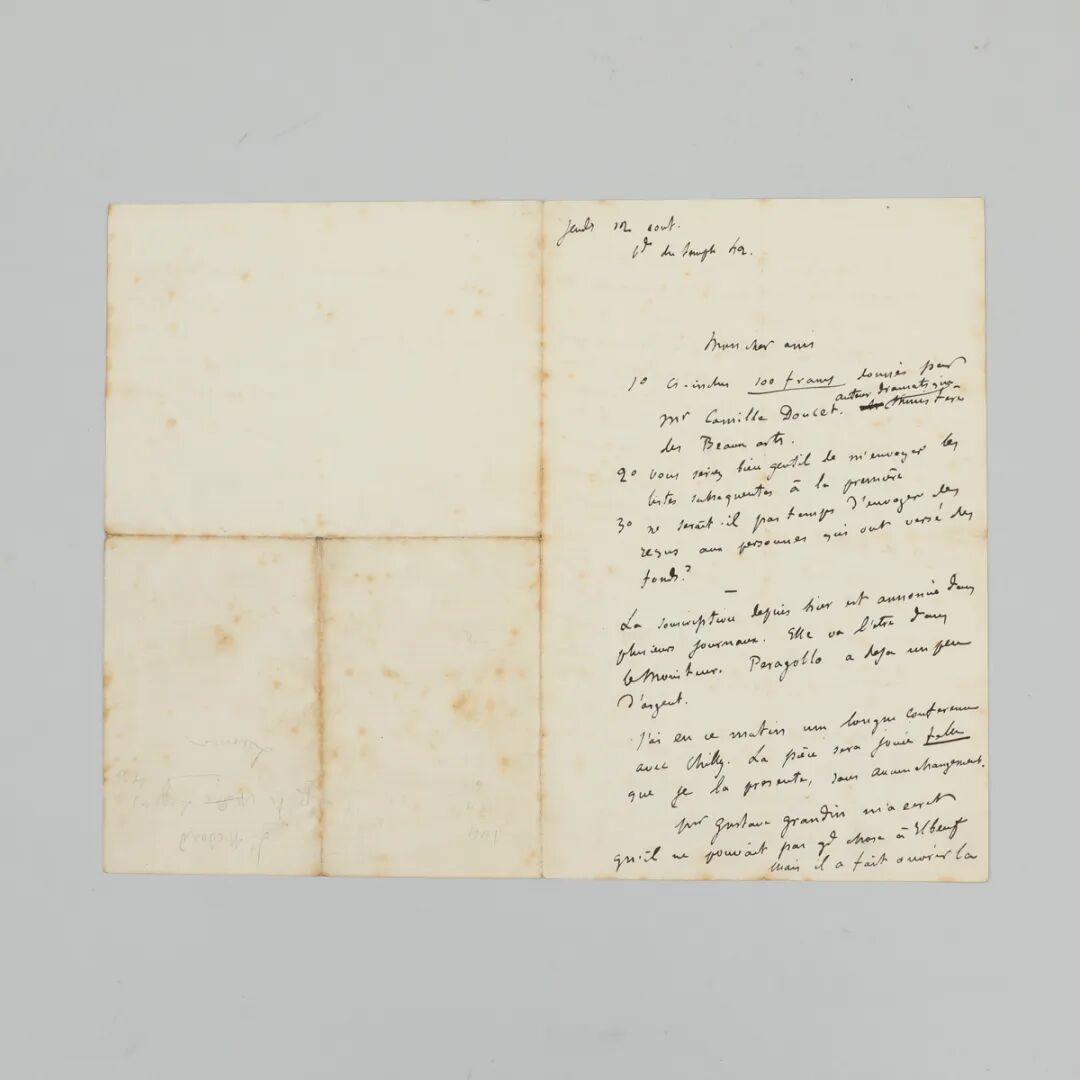 Jeudi 12 aout.
bd du temple 42.
Mon cher ami
1º Ci-inclus 100 francs donnés par
Mr Camille Doucet. auteur dramatique
ministère
des Beaux arts.
2º vous seriez bien gentil de m'envoyer les
listes subsequentes à la première
3º ne serait-il pas temps d'envoyer des
reçus aux personnes qui ont versé des
fonds?
La souscription depuis hier est annoncée dans
plusieurs journaux. Elle va l'être dans
le Moniteur. Peragallo a deja un peu
d'argent.
J'ai eu ce matin une longue conference
avec Chilly. La pièce sera jouée telle
que je la presente, sans aucun changement.
Mr Gustave grandin m'a ecrit
qu'il ne pouvait pas gd chose à Elbeuf
mais il a fait ouvrir la